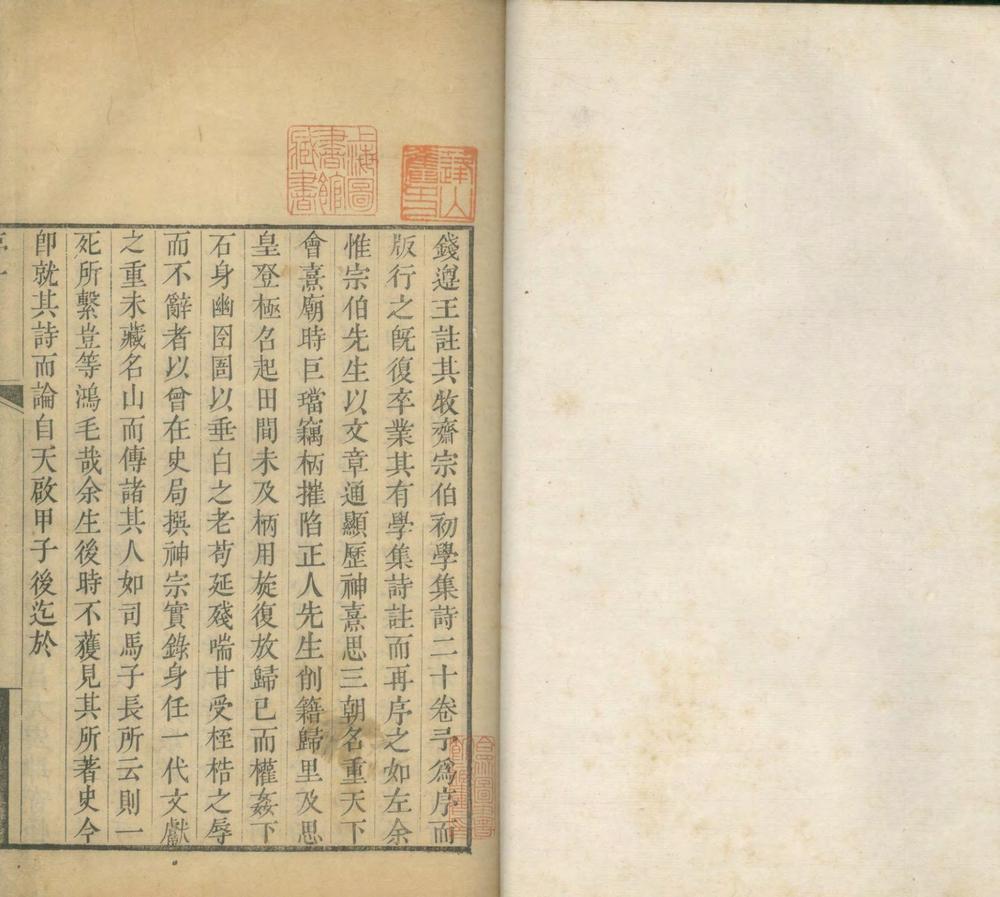 錢遵王註其牧齋宗伯初學集詩二十卷予爲序而
版行之既復卒業其有學集詩註而再序之如左余
惟宗伯先生以文章通顯歷神熹思三朝名重天下
會熹廟時巨璫竊柄摧陷正人先生削籍歸里及思
皇登極名起田間未及柄用旋復放歸已而權姦下
石身幽囹圄以垂白之老苟延殘喘甘受桎梏之辱
而不辭者以曾在史局撰神宗實錄身任一代文獻
之重未藏名山而傳諸其人如司馬子長所云則一
死所繫豈等鴻毛哉余生後時不獲見其所著史今
卽就其詩而論自天啟甲子後迄於
上海圖書館藏書